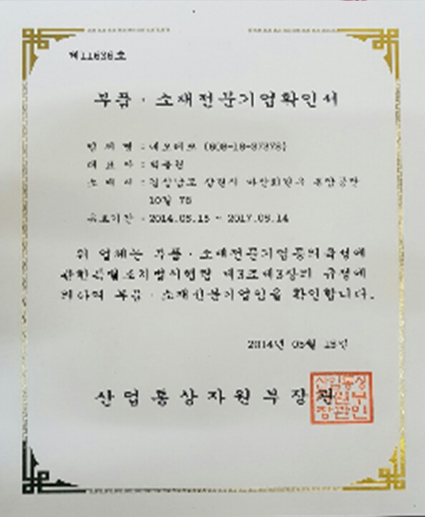 제11636호
부품·소재전문기업확인서
업 체 명 :
대 표 자 :
소 재 지 : 경상남도 창원시 마산회원구
유효기간 : 2014.05.15 ~ 2017.05.14
위 업체는 부품·소재전문기업등의육성에
관한특별조치법시행령 제3조제3항의 규정에
의하여 부품·소재전문기업임을 확인합니다.
2014년 05월 15일
산업통상자원부장관